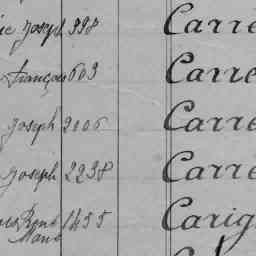 Joseph 998 Carré
François 603 Carre
Joseph 2006 Carré
Joseph 2238 Carre
René 1455 Carig